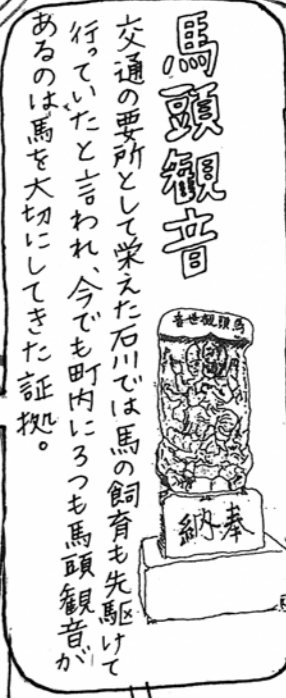 馬頭観音
交通の要所として栄えた石川では馬の飼育も先駆けて
行っていたと言われ、今でも町内に3つも馬頭観音が
あるのは、馬を大切にしてきた証拠。
音世観頭馬
納奉